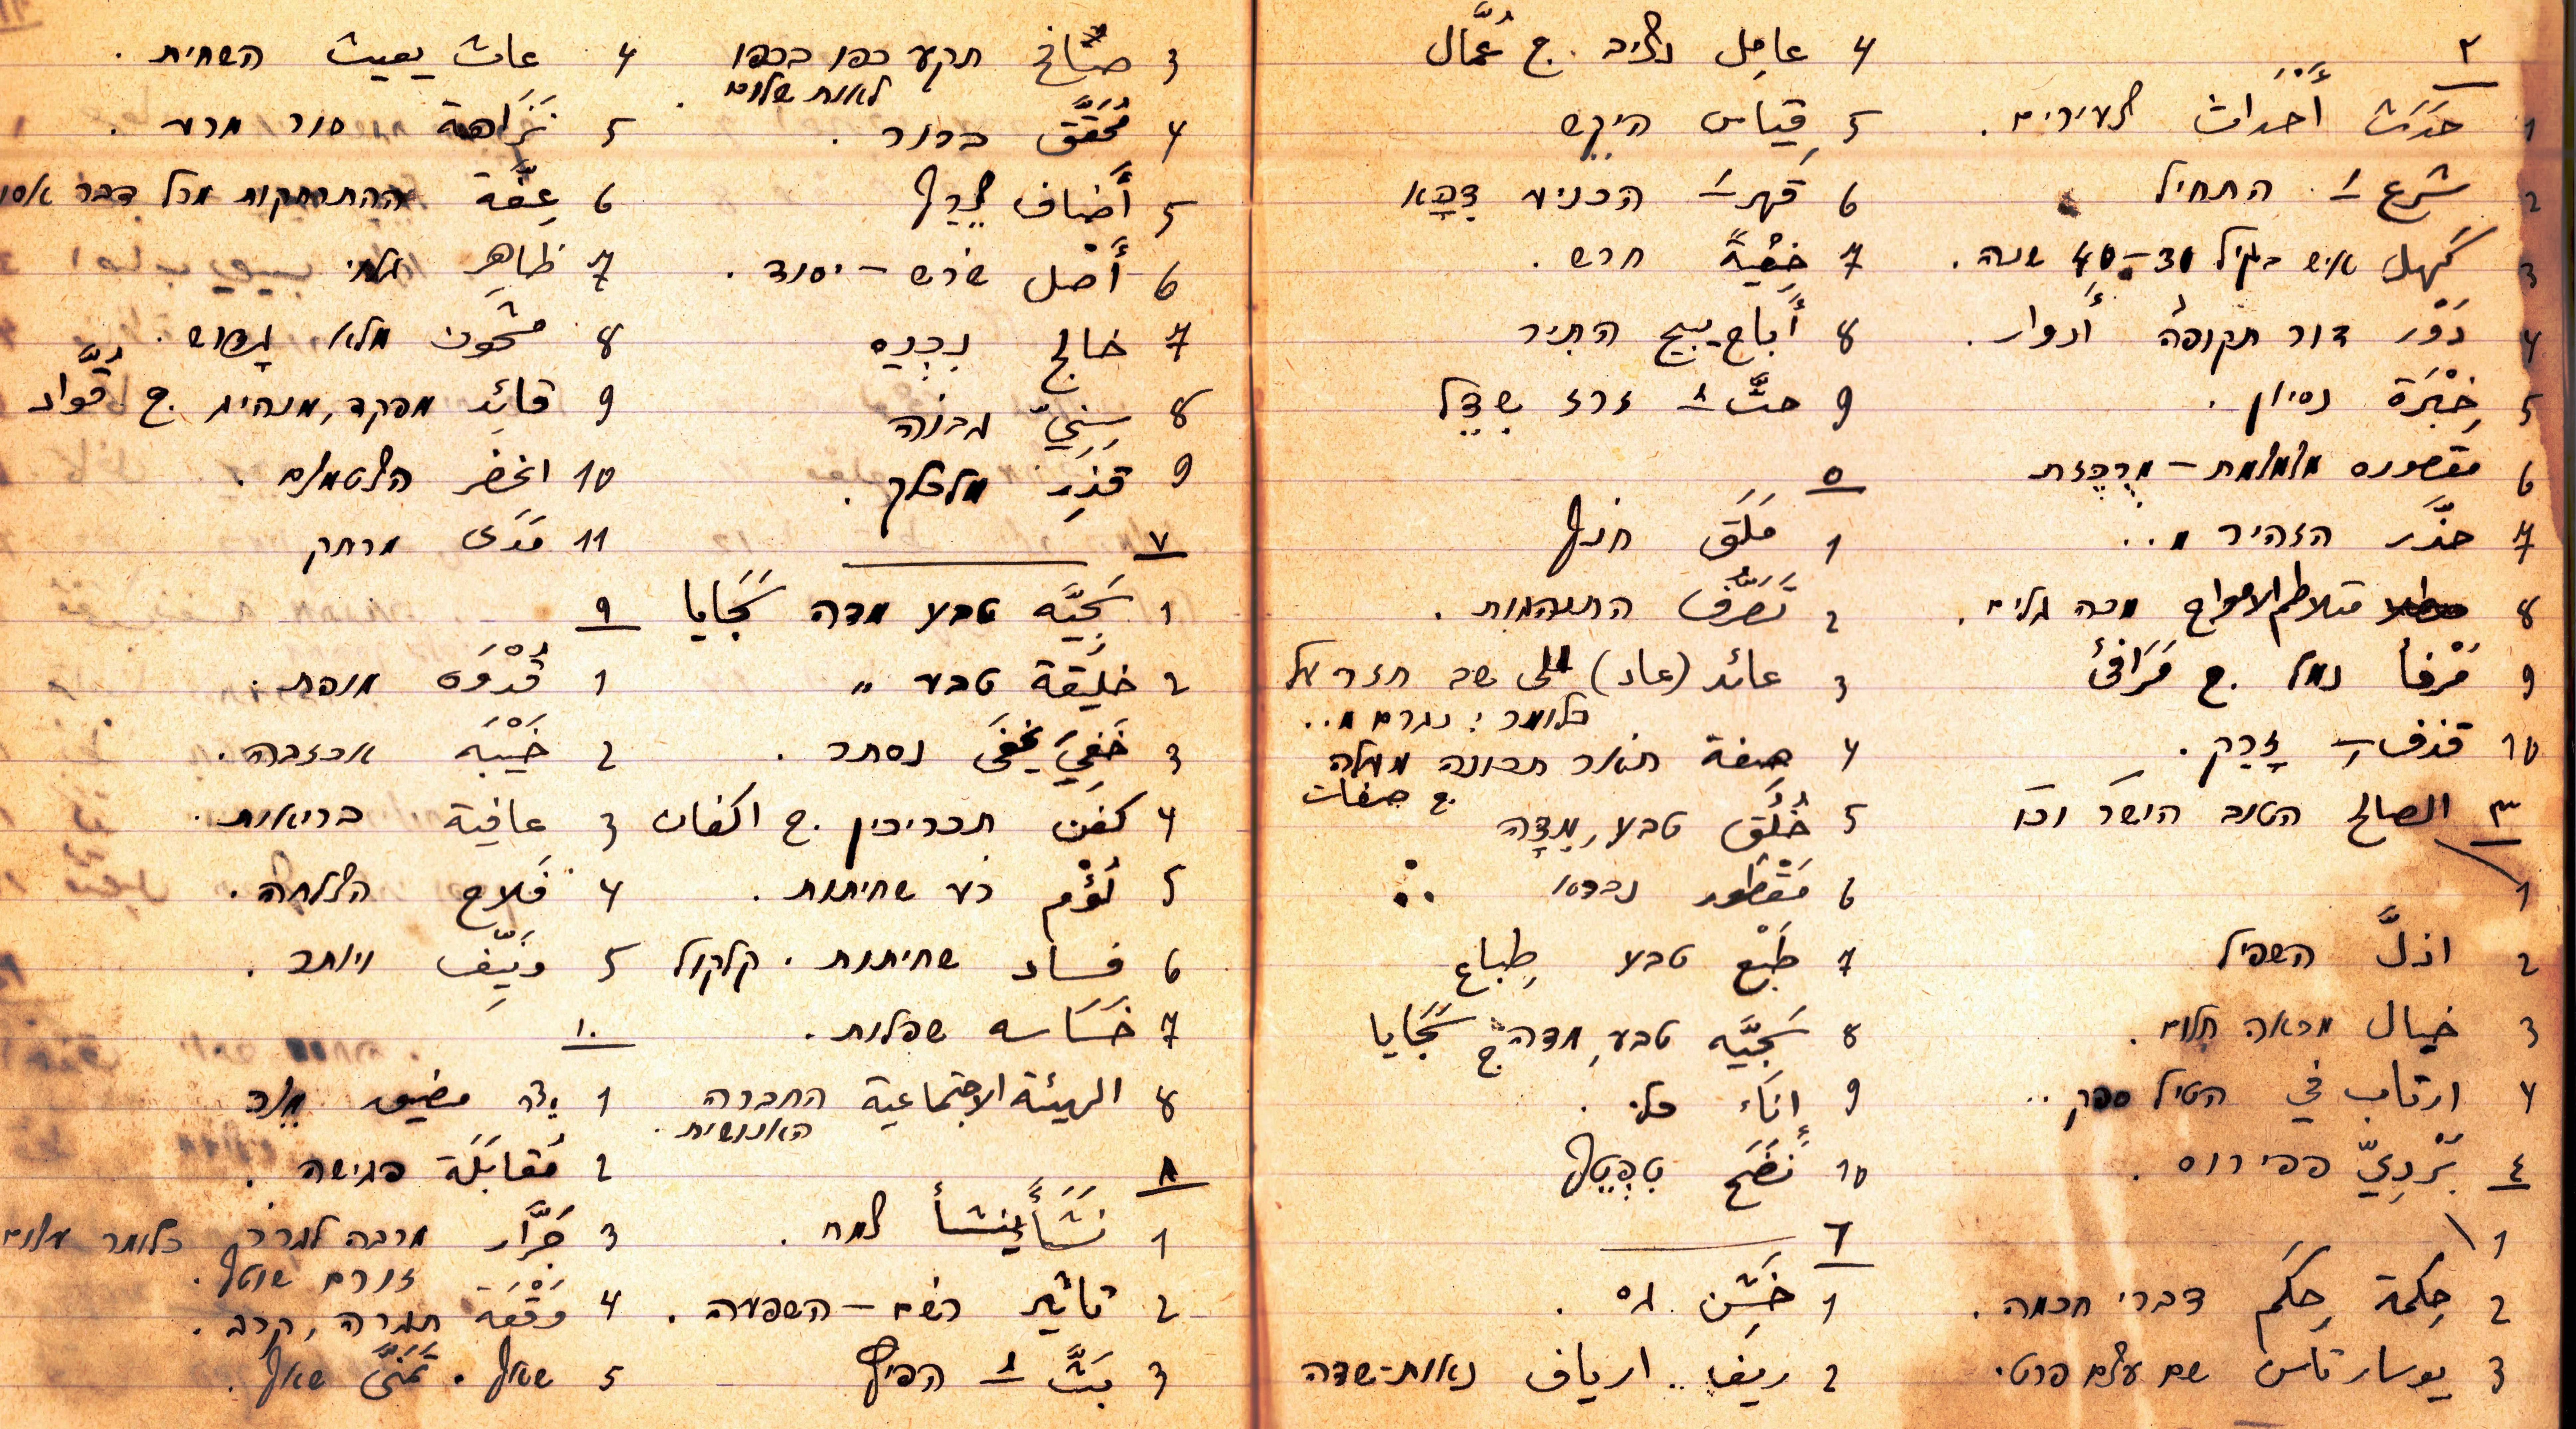 ٢
1 حَدَث أَحْدَاث צעירים.
2 شرع َ התחיל
3 كَهل איש בגיל 30-40 שנה.
4 دَوْر דור תקופה أَدوار.
5 خِبْرَة נסיון.
6 مقصوره מצומצמת - מרכזת
7 حذَّر הזהיר מ..
8 متلاطم الامواج מכה גלים.
9 مَرْفأ נמל ج. مَرَافئ
10 قذف ِ זָרַק.
٣ الصالح הטוב הישר וכו
1
2 اذلَّ השפיל
3 خيال מראה חלום.
4 ارتاب في הטיל ספק..
٤ بَرْدِيّ פפירוס.
1
2 حِكمة حِكَم דברי חכמה.
3 يوسارتاس שם עצם פרטי.
4 عامِل נציב ج. عُمَّال
5 قِياس היקש
6 قَهر َ הכניע דִכֵּא
7 خِفْيَةً חרש.
8 أَباح يبيح התיר
9 حثَّ ُ זרז שִדֵּל
٥
1 مَلَق חנף
2 تَصَرُّف התנהגות.
3 عائد (عاد) على שב חזר על
כלומר: נגרם מ..
4 صِفة תואר תכונה מעלה
ج. صفات
5 خُلُق טבע, מִדָּה
6 مَفْطور
7 طَبْع טבע طِباع
8 سَجِيَّه טבע, מדה ج سَجَايا
9 إِنَاء כלי.
10 نَضَح טִפְטֵף
٦
1 خَشِن גס.
2 ريف ارياف נאות-שדה
3 صَافَح תקע כפו בכפו
לאות שלום.
4 مُحَقَّق ברור.
5 أَضاف צֵרֵף
6 أَصْل שֹרש - יסוד.
7 خالج
8 سِنِيّ
9 قذِر מלכלך.
٧
1 سَجِيَّه טבע מדה سَجَايا
2 خَلِيقة טבע "
3 خَفِيَ يَخفَى נסתר.
4 كفَن תכריכין ج. اكفان
5 لُؤْم רע שחיתות.
6 فساد שחיתות. קלקול
7 خَسَاسه שפלות.
8 الهيئة الاجتماعية החברה
האנושית.
٨
1 نَشَأَ ينشأ צמח.
2 تاثير רשם - השפעה.
3 بَثَّ ُ הפיץ
4 عاث يعيث השחית.
5 نَزَاهة סור מרע.
6 عِفَّة ההתרחקות מכל דבר אסו
7 ظاهِر גלוי
8 مشحون מלא גָּדוש.
9 قائِد מפקד, מנהיג ج. قُوَّاد
10 انحصر הצטמצם.
11 مَدَى מרחק
٩
1 قُدْوَه מופת.
2 خَيْبَه אכזבה.
3 عافية בריאות.
4 فَلاح הצלחה.
5 ونَيِّف ויותר.
١٠
1 مضيق מֵצר
2 مُقابَلَة פגישה.
3 جَرَّار מרבה לגרר כלומר עצום
זורם שוטף.
4 وَقْعَة תגרה, קרב.
5 שאף. تَمَنَّى שאף.